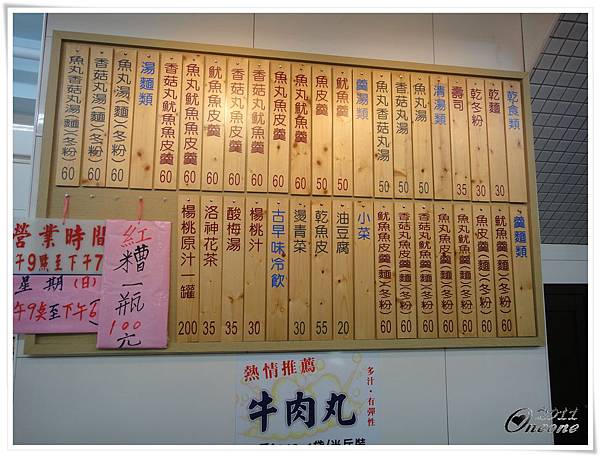 乾食類
乾麵 30
乾冬粉 30
壽司 35
清湯類
魚丸湯 50
香菇丸湯 50
魚丸香菇丸湯 50
羹湯類
魷魚羹 50
魚皮羹 50
魚丸魷魚羹 60
魚丸魚皮羹 60
香菇丸魷魚羹 60
香菇丸魚皮羹 60
魷魚魚皮羹 60
魚丸魷魚魚皮羹 60
香菇丸魷魚魚皮羹 60
湯麵類
魚丸湯(麵)(冬粉) 60
香菇丸湯(麵)(冬粉) 60
魚丸香菇丸湯(麵)(冬粉) 60
羹麵類
魷魚羹(麵)(冬粉) 60
魚皮羹(麵)(冬粉) 60
魚丸魷魚羹(麵)(冬粉) 60
魚丸魚皮羹(麵)(冬粉) 60
香菇丸魷魚羹(麵)(冬粉) 60
香菇丸魚皮羹(麵)(冬粉) 60
魷魚魚皮羹(麵)(冬粉) 60
小菜
油豆腐 20
乾魚皮 55
燙青菜 30
古早味冷飲
楊桃汁 30
酸梅湯 35
洛神花茶 35
楊桃原汁一罐 200
營業時間
午9點至下午7
星期(日)
午9点至下午6
紅糟一瓶
100元
熱情推薦
多汁·有彈性
牛肉丸
2011
Oncone